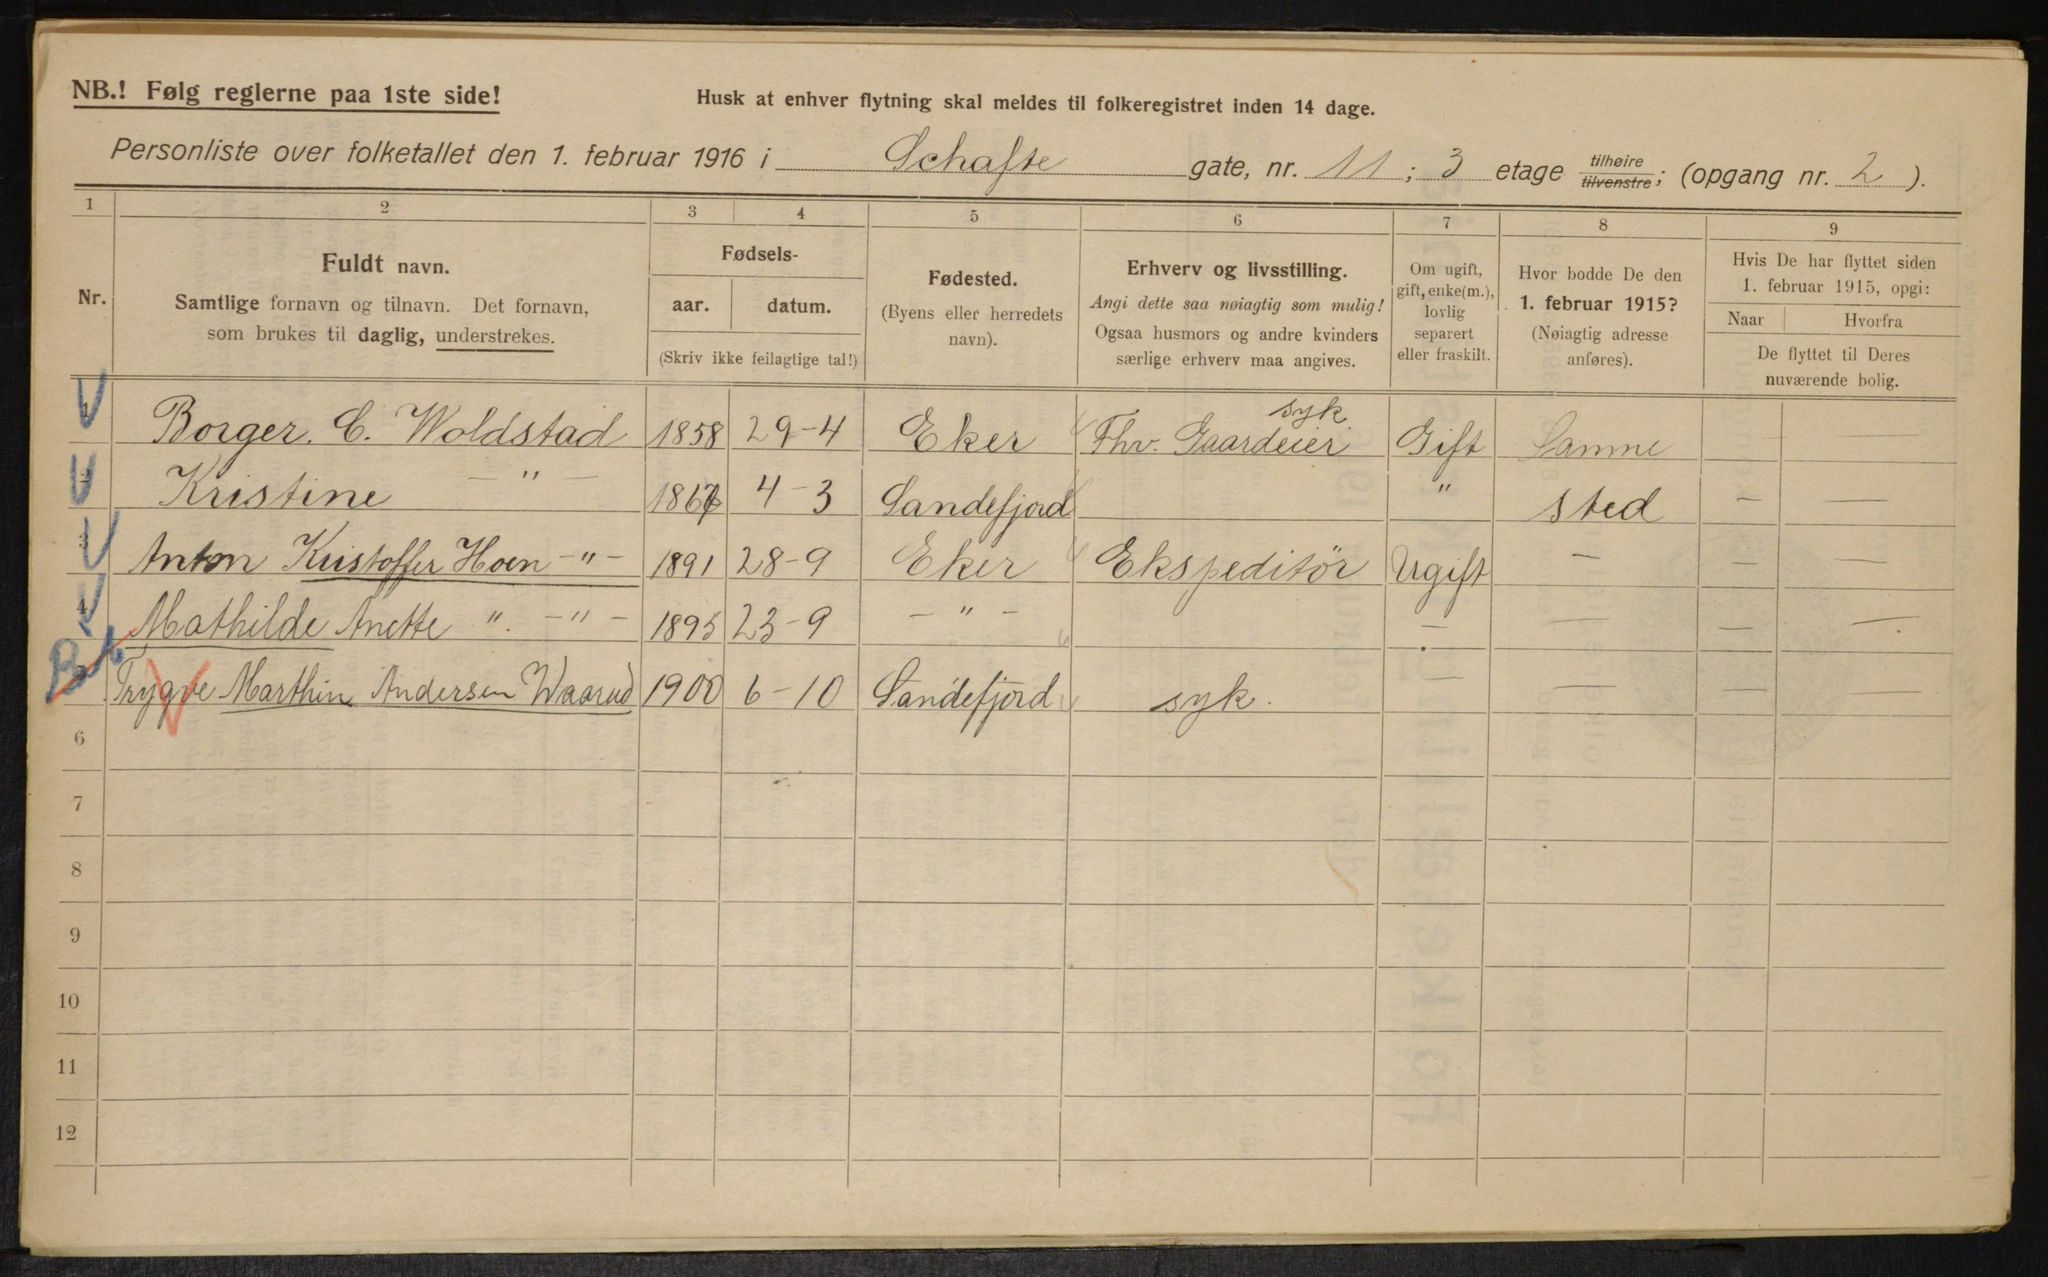 NB.! Følg reglerne paa 1ste side!
Husk at enhver flytning skal meldes til folkeregistret inden 14 dage.
Personliste over folketallet den 1. februar 1916 i Schafte gate, nr. 11; 3 etage tilhøire tilvenstre; (opgang nr. 2).
1 2 3 4 5 6 7 8 9
Nr. Fuldt navn. Samtlige fornavn og tilnavn. Det fornavn, som brukes til daglig, understrekes.
Fødsels- aar. datum. (Skriv ikke feilagtige tal!)
Fødested. (Byens eller herredets navn).
Erhverv og livsstilling. Angi dette saa nøiagtig som mulig! Ogsaa husmors og andre kvinders særlige erhverv maa angives.
Om ugift, gift, enke(m.), lovlig separert eller fraskilt.
Hvor bodde De den 1. februar 1915? (Nøiagtig adresse anføres).
Hvis De har flyttet siden 1. februar 1915, opgi: Naar Hvorfra De flyttet til Deres nuværende bolig.
1 Borger. C. Woldstad 1858 29-4 Eker Fhv. Gaardeier syk. Gift Samme — —
2 Kristine — " — 4-3 Sandefjord " sted — —
3 Anton Kristoffer Hoen — " — 1891 28-9 Eker Ekspeditør Ugift — — —
4 Mathilde Anette ". — " — 1895 23-9 — " — — — — —
Trygve Marthin Andersen Waarud 1900 6-10 Sandefjord syk. — — — —
6
7
8
9
10
11
12